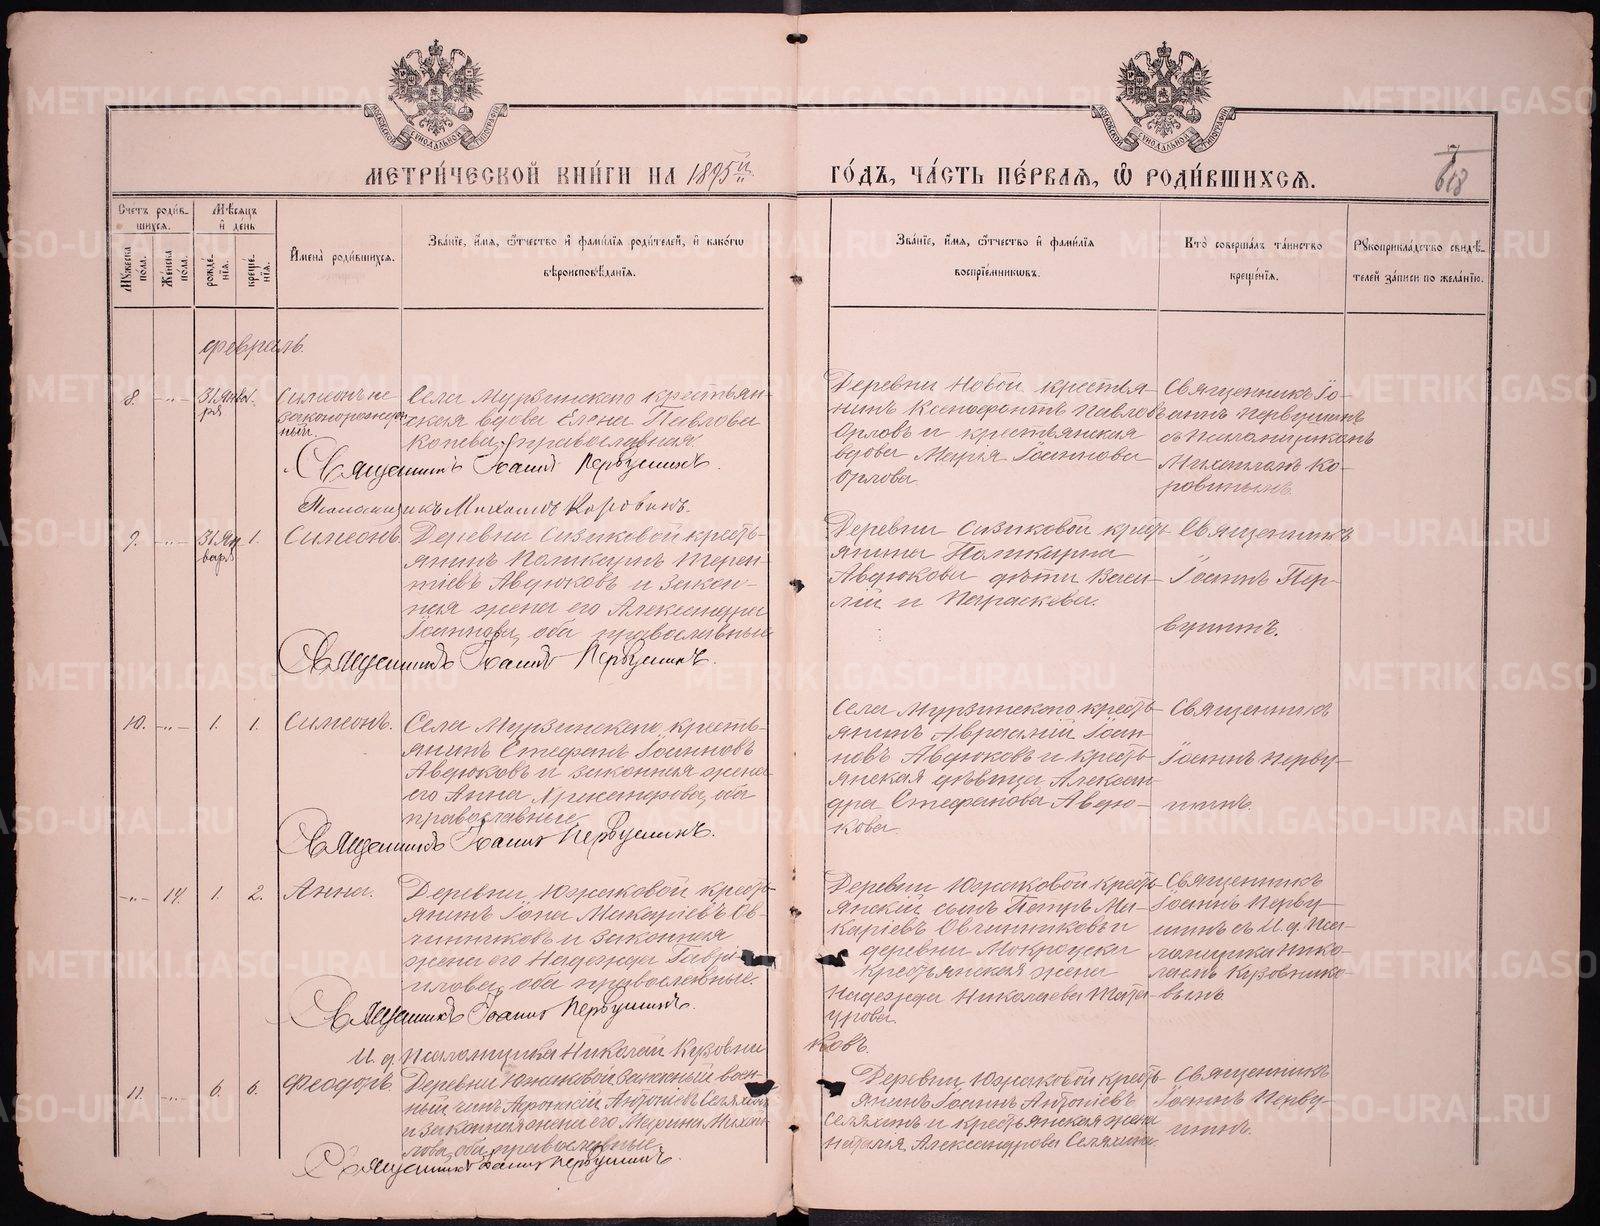 МЕТРИ́ЧЕСКОЙ КНИ́ГИ НА 1895й
ГО́ДЪ, ЧА́СТЬ ПЕ́РВАЯ, Ѡ РОДИ́ВШИХСЯ.
Счетъ роди́в-
шихся.
Мѣсяцъ
и́ де́нь
Му́жеска
по́ла.
Же́нска
по́ла.
рожде́-
нія.
креще́-
нія.
И́мена роди́вшихся.
Зва́ніе, и́мя, ѻ́тчество и́ фами́лія роди́телей, и́ како́гѡ
вѣроисповѣ́данія.
Зва́ніе, и́мя, ѻ́тчество и́ фами́лія
воспріе́мниковъ.
Кто̀ соверша́лъ та́инство
креще́нія.
Рꙋкоприкла́дство свидѣ́-
телей за́писи по жела́нію.
февраль.
8.
31 Янва-
ря
1.
Симеонъ не
законорожден-
ный.
Села Мурзинскаго крестьян-
ская вдова Елена Павлова
Копева, православная.
Священникъ Іоаннъ Первушинъ.
Псаломщикъ Михаилъ Коровинъ.
Деревни Новой крестья-
нинъ Ксенофонтъ Павловъ
Орловъ и крестьянская
вдова Марія Іоаннова
Орлова.
Священникъ Іо-
аннъ Первушинъ
съ Псаломщикомъ
Михаиломъ Ко-
ровинымъ.
9.
31 Ян-
варя
1.
Симеонъ.
Деревни Сизиковой кресть-
янинъ Поликарпъ Терен-
тіевъ Авдюковъ и закон-
ная жена его Александра
Іоаннова, оба православные
Священникъ Іоаннъ Первушинъ.
Деревни Сизиковой крест-
янина Поликарпа
Авдюкова дѣти Васи-
лій и Параскева.
Священникъ
Іоаннъ Пер-
вушинъ.
10.
1.
1.
Симеонъ.
Села Мурзинскаго кресть-
янинъ Стефанъ Іоанновъ
Авдюковъ и законная жена
его Анна Александрова, оба
православные.
Священникъ Іоаннъ Первушинъ.
Села Мурзинскаго кресть-
янинъ Авраамій Іоан-
новъ Авдюковъ и кресть-
янская дѣвица Алексан-
дра Стефанова Авдю-
кова.
Священникъ
Іоаннъ Перву-
шинъ.
14.
1.
2.
Анна.
Деревни Южаковой кресть-
янинъ Іона Макаріевъ Ов-
чинниковъ и законная
жена его Надежда Гаврі-
илова, оба православные.
Священникъ Іоаннъ Первушинъ.
И. д. псаломщика Николай Кузовни
ковъ.
Деревни Южаковой кресть-
янскій сынъ Петръ Ма-
каріевъ Овчинниковъ и
деревни Мокроуски
крестьянская жена
Надежда Николаева Тата-
урова.
Священникъ
Іоаннъ Перву-
шинъ съ И. д. Пса-
ломщика Нико-
лаемъ Кузовнико-
вымъ.
11.
6.
6.
Феодоръ
Деревни Южаковой запасный воен-
ный чинъ Антоніевъ Селяхинъ
и законная жена его Марина Михаи-
лова, оба православные.
Священникъ Іоаннъ Первушинъ.
Деревни Южаковой кресть-
янинъ Іоаннъ Антоніевъ
Селяхинъ и крестьянская жена
Наталья Александрова Селяхина.
Священникъ
Іоаннъ Перву-
шинъ.